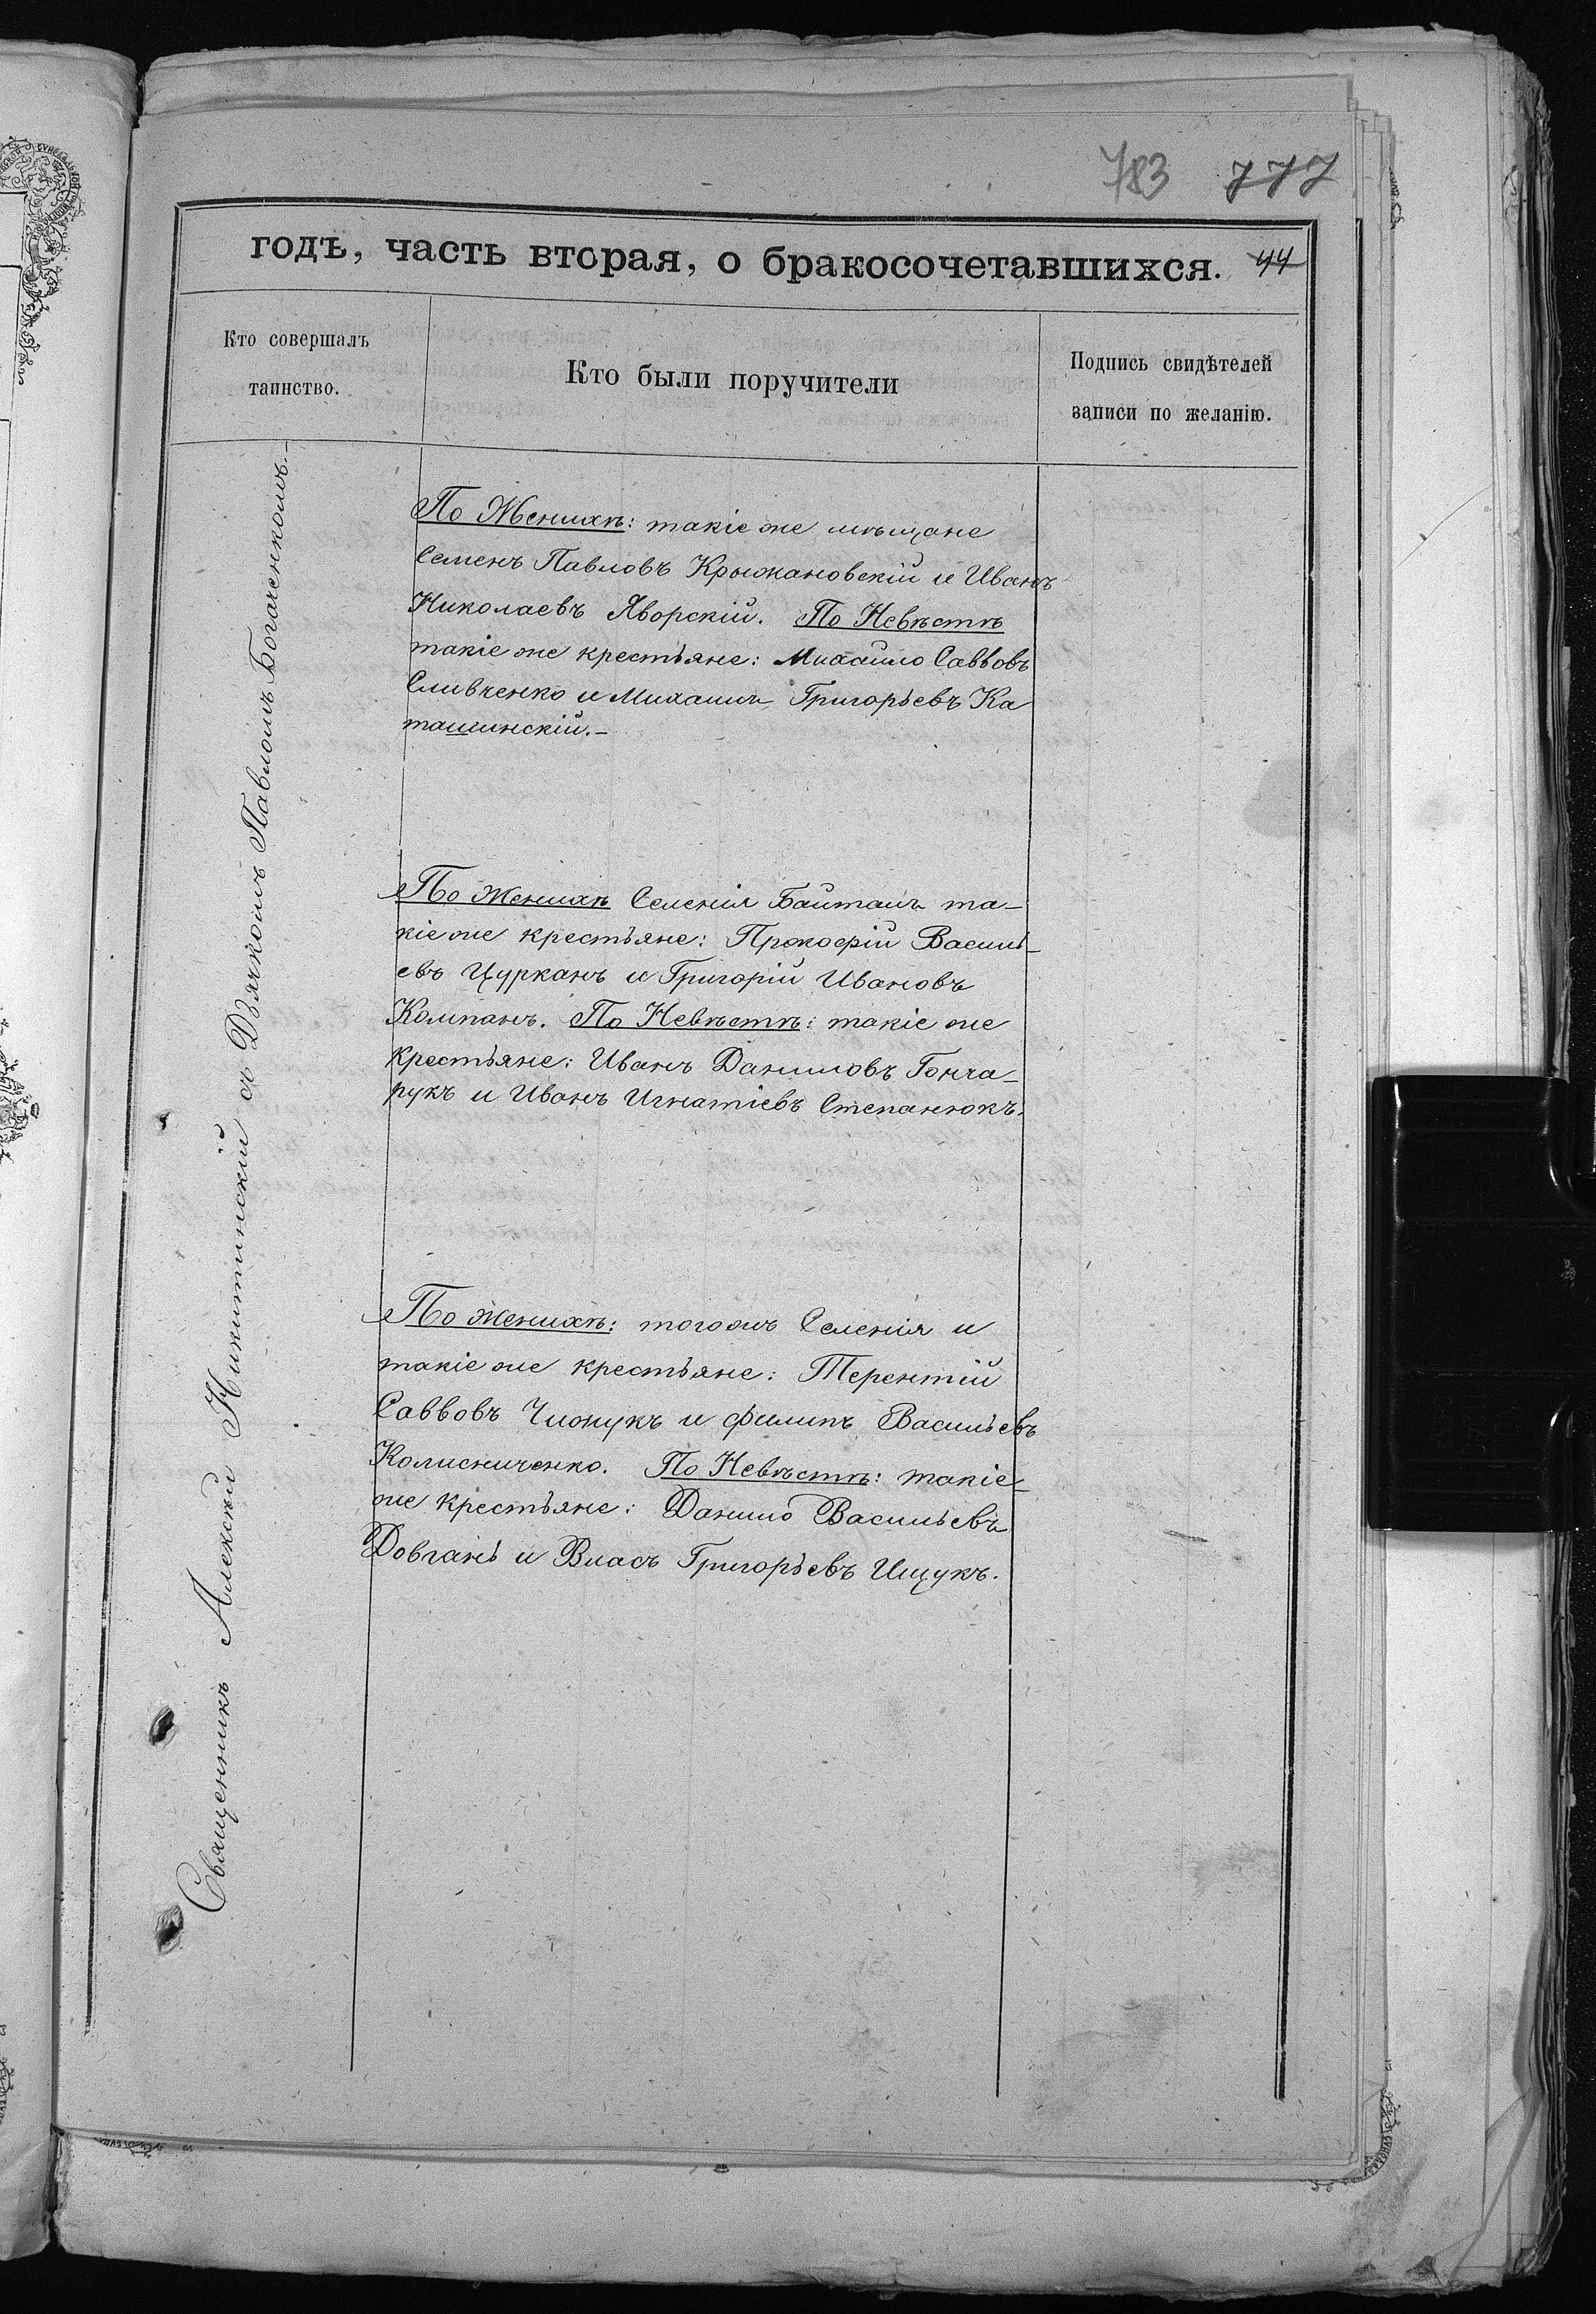 783 777
годъ, часть вторая, о бракосочетавшихся. 44
Кто совершалъ
таинство.
Кто были поручители
Подпись свидѣтелей
записи по желанію.
Священникъ Алексѣй Никитинскій съ Дьякомъ Павломъ Богаченкомъ.–
По Женихѣ: такіе же мѣщане
Семенъ Павловъ Крыжановскій и Иванъ
Николаевъ Яворскій. По Невѣстѣ
такіе же крестьяне: Михайло Саввовъ
Сливченко и Михаилъ Григорьевъ Ка
ташинскій.–
По Женихѣ Семенія Байталъ та–
кіе же крестьяне: Прокофій Василь–
евъ Цурканъ и Григорій Ивановъ
Компанъ. По Невѣстѣ: такіе же
крестьяне: Иванъ Даниловъ Гонча–
рукъ и Иванъ Игнатіевъ Степанюкъ.
По Женихѣ: тогожъ Селенія и
такіе же крестьяне: Терентій
Саввовъ и Филипъ Васильевъ
Колисниченко. По Невѣстѣ: такіе–
же крестьяне: Данило Васильевъ
Довгань и Власъ Григорьевъ Ищукъ.